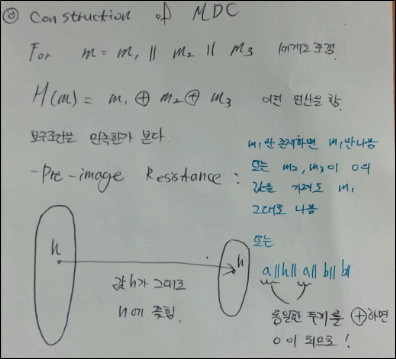 ◎ Construction of MDC
For m = m₁ || m₂ || m₃ 이라고 가정.
H(m) = m₁ ⊕ m₂ ⊕ m₃ 이런 연산을 함.
요구조건을 만족한가 본다.
- Pre-image Resistance :
m₁만 존재하면 m₁만 나옴
또는 m₂, m₃이 0의
값을 가져도 m₁
그대로 나옴
또는
a||h|| a|| b|| b||
동일한 두개를 ⊕하면
0이 되므로!
h
h
값 h가 그대로
h에 찍힘.